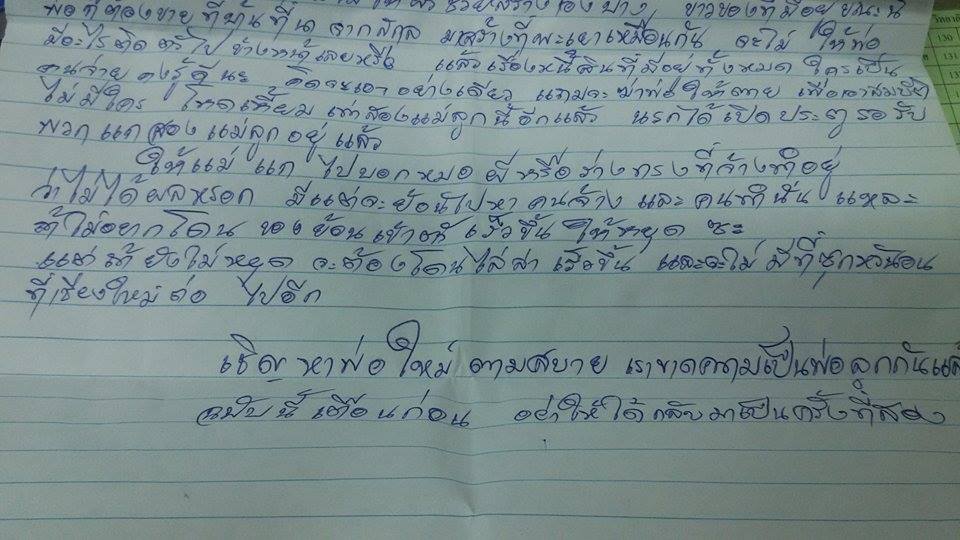 พอที่ต้องขายที่บ้านที่นา จากสกุล มาสร้างที่พะเยาเหมือนกัน จะไม่ ให้พ่อ
มีอะไรติด ตัวไป บ้างงานนี้เลยหรือ แล้วเรื่องหนี้สินที่มีอยู่ทั้งหมด ใครเป็น
คนจ่าย คงรู้ดีนะ คิดจะเอา อย่างเดียว แถมจะฆ่าพ่อให้ตาย เพื่อเอาสมบัติ
ไม่มีใคร โหดเหี้ยม เท่าสองแม่ลูกนี้อีกแล้ว นรกได้เปิดประตูรอรับ
พวกแกสองแม่ลูกอยู่ แล้ว
ให้แม่ แก ไปบอกหมอ ผีหรือร่างทรงที่จ้างทำอยู่
ว่าไม่ได้ผลหรอก มีแต่จะย้อนไปหา คนจ้าง และ คนทำนั่น แหละ
ถ้าไม่อยากโดน ของย้อนเข้าตัว เร็วขึ้น ให้หยุด ซะ
แต่ ถ้ายังไม่หยุด จะต้องโดนไล่ล่า เร็วขึ้น และจะไม่ มีที่ซุกหัวนอน
ที่เชียงใหม่ ต่อ ไปอีก
เชิญ หาพ่อใหม่ ตามสบาย เราขาดความเป็นพ่อลูกกันแล้ว
ฉบับนี้ เตือนก่อน อย่าให้ได้ กลับมาเป็นครั้งที่สอง
130
131